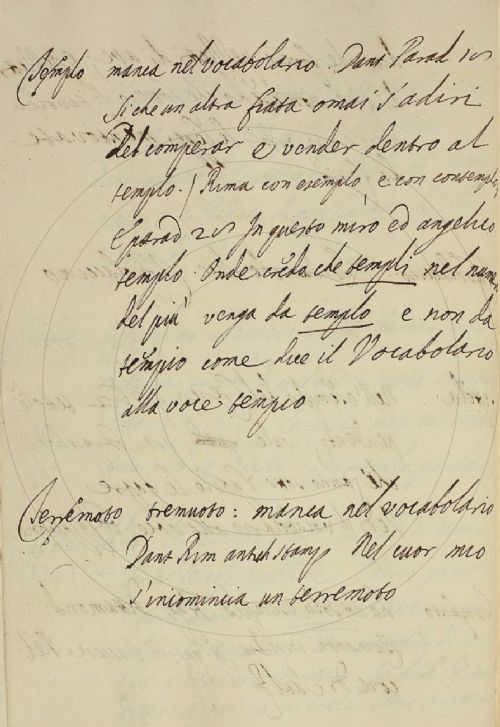 Templo manca nel vocabolario. Dant Parad 18
Si che un altra fiata omai s'adiri
Del comperar e vender dentro al
templo. / Rima con esemplo e con contemplo
E parad 28 In questo miro ed angelico
templo. Onde credo che templi nel num.
del più venga da templo e non da
tempio come dice il Vocabolario
alla voce tempio
Terremoto tremuoto: manca nel vocabolario
Dant Rim antich stamp Nel cuor mio
s'incomincia un terremoto